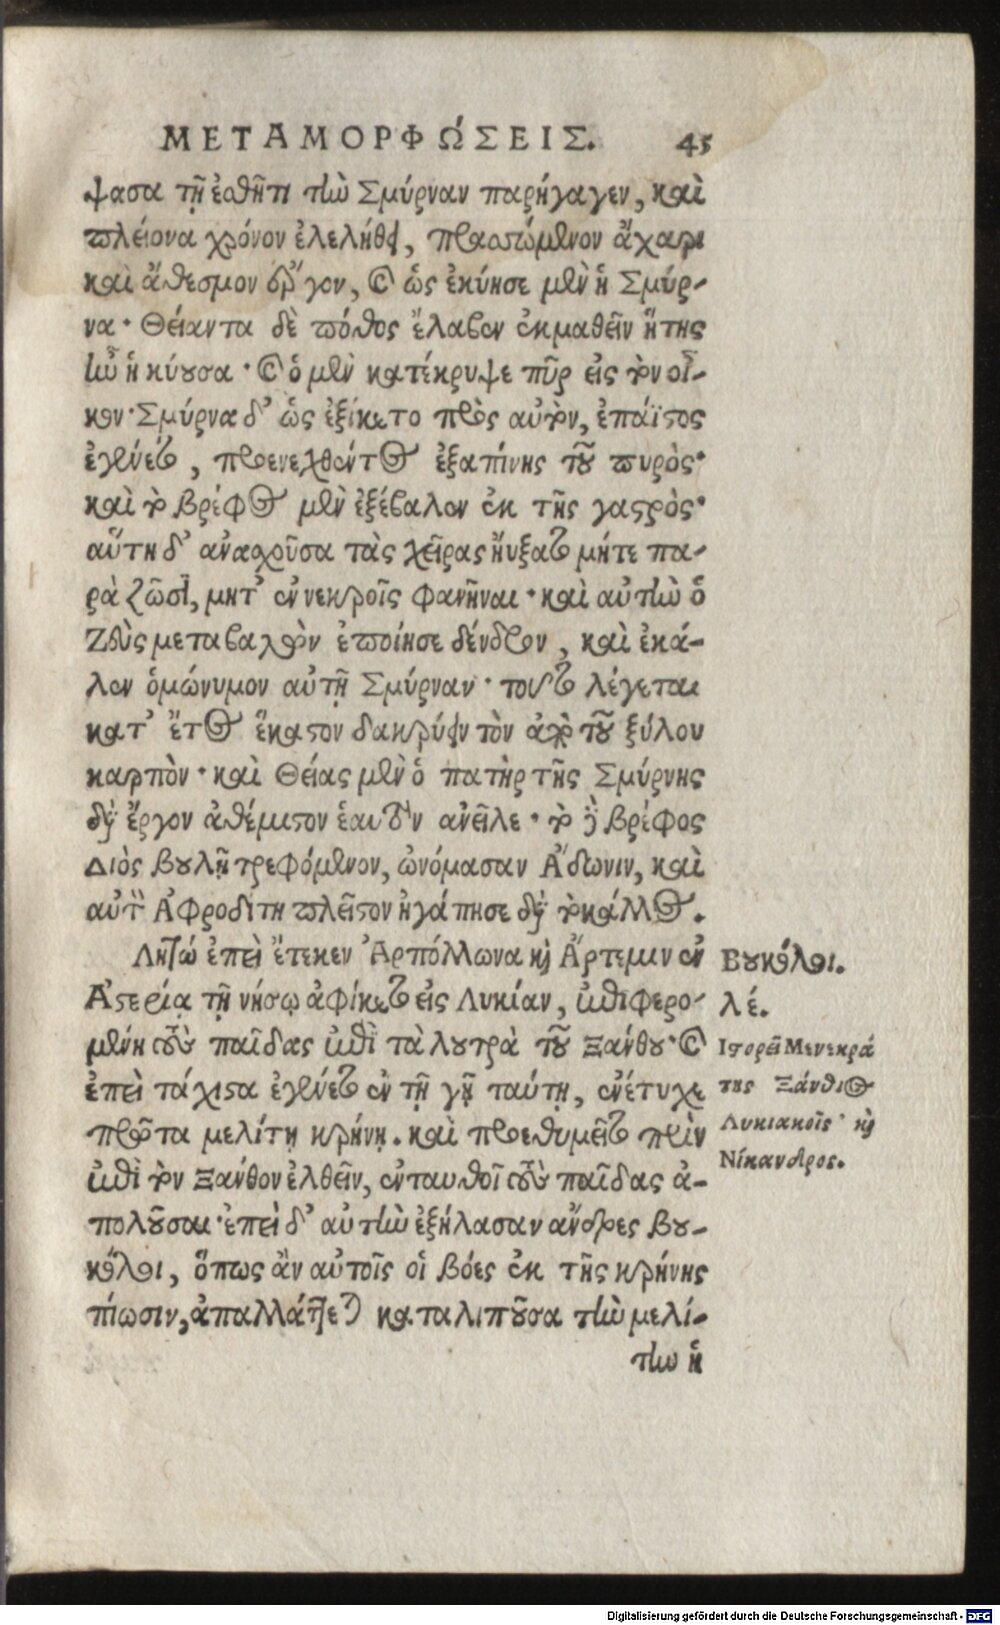 ΜΕΤΑΜΟΡΦΏΣΕΙΣ. 45
ψασα τῇ ἐσθῆτι τὴν Σμύρναν παρήγαγεν, καὶ
πλείονα χρόνον ἐλελήθει, πρασσόμενον ἄχαρι
καὶ ἄθεσμον ἔργον, καὶ ὡς ἐκύησε μὲν ἡ Σμύρ-
να· Θείαντα δὲ πόθος ἔλαβεν ἐκμαθεῖν ἥτις
ἦν ἡ κύουσα· καὶ ὁ μὲν κατέκρυψε πῦρ εἰς τὸν οἶ-
κον· Σμύρνα δ' ὡς ἐξίκετο πρὸς αὐτὸν, ἐπάϊστος
ἐγένετο, προενεχθέντος ἐξαπίνης τοῦ πυρὸς·
καὶ τὸ βρέφος μὲν ἐξέβαλεν ἐκ τῆς γαστρὸς·
αὕτη δ' ἀνασχοῦσα τὰς χεῖρας ηὔξατο μήτε πα-
ρὰ ζῶσι, μήτ' ἐν νεκροῖς φανῆναι· καὶ αὐτὴν ὁ
Ζεὺς μεταβαλὼν ἐποίησε δένδρον, καὶ ἐκά-
λεν ὁμώνυμον αὐτῇ Σμύρναν· τοῦτο λέγεται
κατ' ἔτος ἕκαστον δακρύειν τὸν ἀπὸ τοῦ ξύλου
καρπὸν· καὶ Θείας μὲν ὁ πατὴρ τῆς Σμύρνης
δι' ἔργον ἀθέμιστον ἑαυτὸν ἀνεῖλε· τὸ δὲ βρέφος
Διὸς βουλῇ τρεφόμενον, ὠνόμασαν Ἄδωνιν, καὶ
αὐτὸν Ἀφροδίτη πλεῖστον ἠγάπησε διὰ τὸ κάλλος.
Λητώ ἐπεὶ ἔτεκεν Ἀπόλλωνα καὶ Ἄρτεμιν ἐν
Ἀστερίᾳ τῇ νήσῳ ἀφίκετο εἰς Λυκίαν, ἐπιφερο-
μένη τοὺς παῖδας ἐπὶ τὰ λουτρὰ τοῦ Ξάνθου· καὶ
ἐπεὶ τάχιστα ἐγένετο ἐν τῇ γῇ ταύτῃ, ἐνέτυχε
πρῶτα μελίτῃ κρήνῃ. καὶ προεθυμεῖτο πρὶν
ἐπὶ τὸν Ξάνθον ἐλθεῖν, ἐνταυθοῖ τοὺς παῖδας ἀ-
πολοῦσαι· ἐπεὶ δ' αὐτὴν ἐξήλασαν ἄνδρες βου-
κόλοι, ὅπως ἂν αὐτοῖς οἱ βόες ἐκ τῆς κρήνης
πίωσιν, ἀπαλλάττεται καταλιποῦσα τὴν μελί-
την ἡ
Βουκόλοι.
λέ.
Ἱστορεῖ Μενεκρά
της Ξάνθιος
Λυκιακοῖς· καὶ
Νίκανδρος.
Digitalisierung gefördert durch die Deutsche Forschungsgemeinschaft - DFG